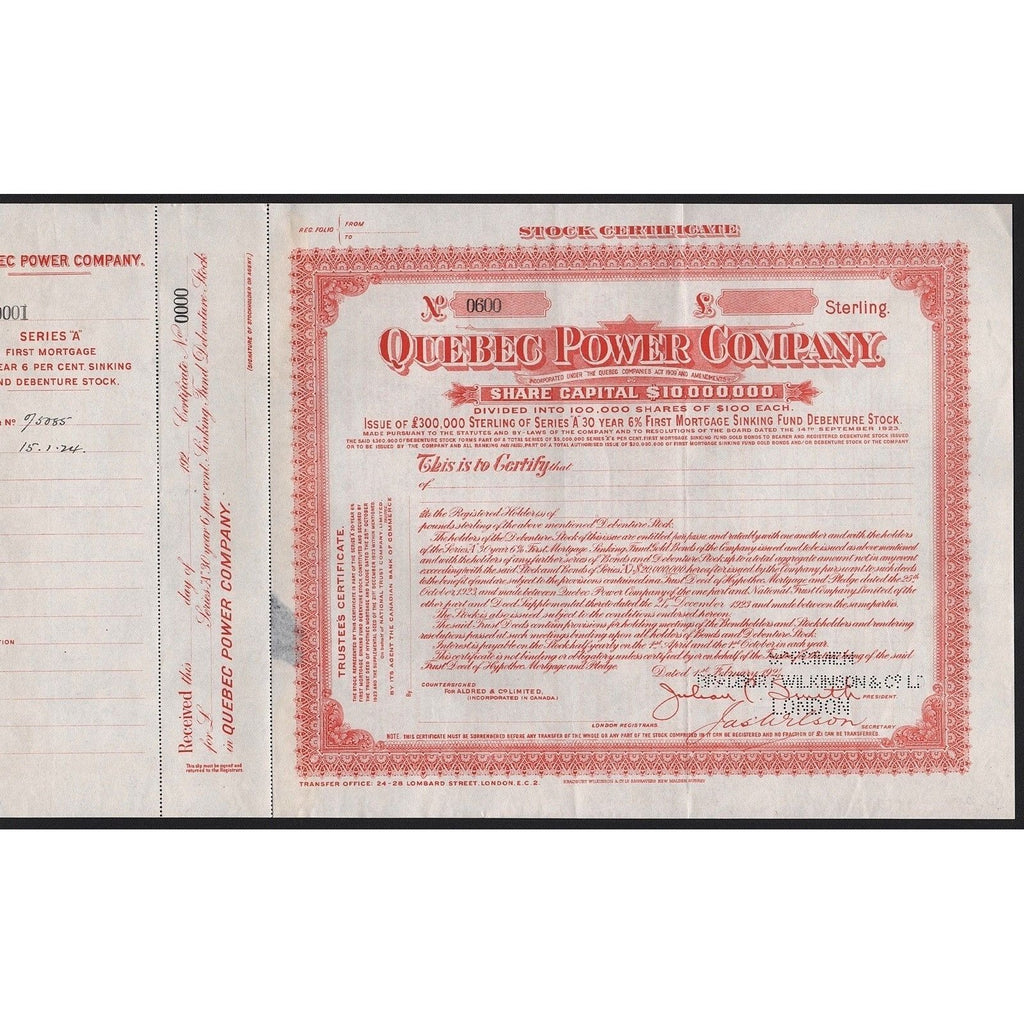 EC POWER COMPANY.
0001
SERIES "A"
FIRST MORTGAGE
EAR 6 PER CENT. SINKING
ND DEBENTURE STOCK.
Nº 9/5085
15.1.24.
ION
Received this day of 192 Certificate Nº 0000
for £ Series "A" 30 year 6 per cent. Sinking Fund Debenture Stock
in QUEBEC POWER COMPANY.
(SIGNATURE OF STOCKHOLDER OR AGENT.)
This slip must be signed and
returned to the Registrars.
REG. FOLIO FROM
TO
STOCK CERTIFICATE
Nº 0600 £ Sterling.
QUEBEC POWER COMPANY.
INCORPORATED UNDER "THE QUEBEC COMPANIES ACT 1909 AND AMENDMENTS"
SHARE CAPITAL $10,000,000.
DIVIDED INTO 100,000 SHARES OF $100 EACH.
ISSUE OF £300,000 STERLING OF SERIES "A" 30 YEAR 6% FIRST MORTGAGE SINKING FUND DEBENTURE STOCK.
MADE PURSUANT TO THE STATUTES AND BY-LAWS OF THE COMPANY AND TO RESOLUTIONS OF THE BOARD DATED THE 14TH SEPTEMBER 1923.
This is to Certify that
of
is the Registered Holder of
pounds sterling of the above mentioned Debenture Stock.
The holders of the Debenture Stock of this issue are entitled pari passu and rateably with one another and with the holders
of the Series "A" 30 Year 6% First Mortgage Sinking Fund Gold Bonds of the Company issued and to be issued as above mentioned
and with the holders of any further series of Bonds and Debenture Stock up to a total aggregate amount not in any event
exceeding with the said Stock and Bonds of Series "A" $20,000,000 hereafter issued by the Company pursuant to such deeds
to the benefit of and are subject to the provisions contained in a Trust Deed of Hypothec, Mortgage and Pledge dated the 25th
October 1923 and made between Quebec Power Company of the one part and National Trust Company, Limited, of the
other part and Deed Supplemental thereto dated the 21st December 1923 and made between the same parties.
The Stock is also issued subject to the conditions endorsed hereon.
The said Trust Deeds contain provisions for holding meetings of the Bondholders and Stockholders and rendering
resolutions passed at such meetings binding upon all holders of Bonds and Debenture Stock.
Interest is payable on the Stock half yearly on the 1st April and the 1st October in each year.
This certificate is not binding or obligatory unless certified by or on behalf of the of the said
Trust Deed of Hypothec, Mortgage and Pledge.
Dated 1st February 192
SPECIMEN
WILKINSON & Cº L
LONDON
COUNTERSIGNED
FOR ALDRED & Cº LIMITED,
(INCORPORATED IN CANADA.)
By
LONDON REGISTRARS
Julian C. Smith PRESIDENT.
Jas Wilson SECRETARY.
NOTE. THIS CERTIFICATE MUST BE SURRENDERED BEFORE ANY TRANSFER OF THE WHOLE OR ANY PART OF THE STOCK COMPRISED IN IT CAN BE REGISTERED AND NO FRACTION OF £1 CAN BE TRANSFERRED.
TRUSTEES CERTIFICATE.
THE STOCK REPRESENTED BY THIS CERTIFICATE IS PART OF THE SERIES "A" 30 YEAR 6%
FIRST MORTGAGE SINKING FUND DEBENTURE STOCK CONSTITUTED AND SECURED BY
THE TRUST DEED OF HYPOTHEC MORTGAGE AND PLEDGE DATED THE 25TH OCTOBER
1923 AND THE SUPPLEMENTAL DEED OF THE 21ST DECEMBER 1923 WITHIN MENTIONED.
On behalf of NATIONAL TRUST COMPANY LIMITED
BY ITS AGENT THE CANADIAN BANK OF COMMERCE
TRANSFER OFFICE: 24-28 LOMBARD STREET, LONDON, E.C.2.
BRADBURY WILKINSON & Cº Lº ENGRAVERS NEW MALDEN SURREY